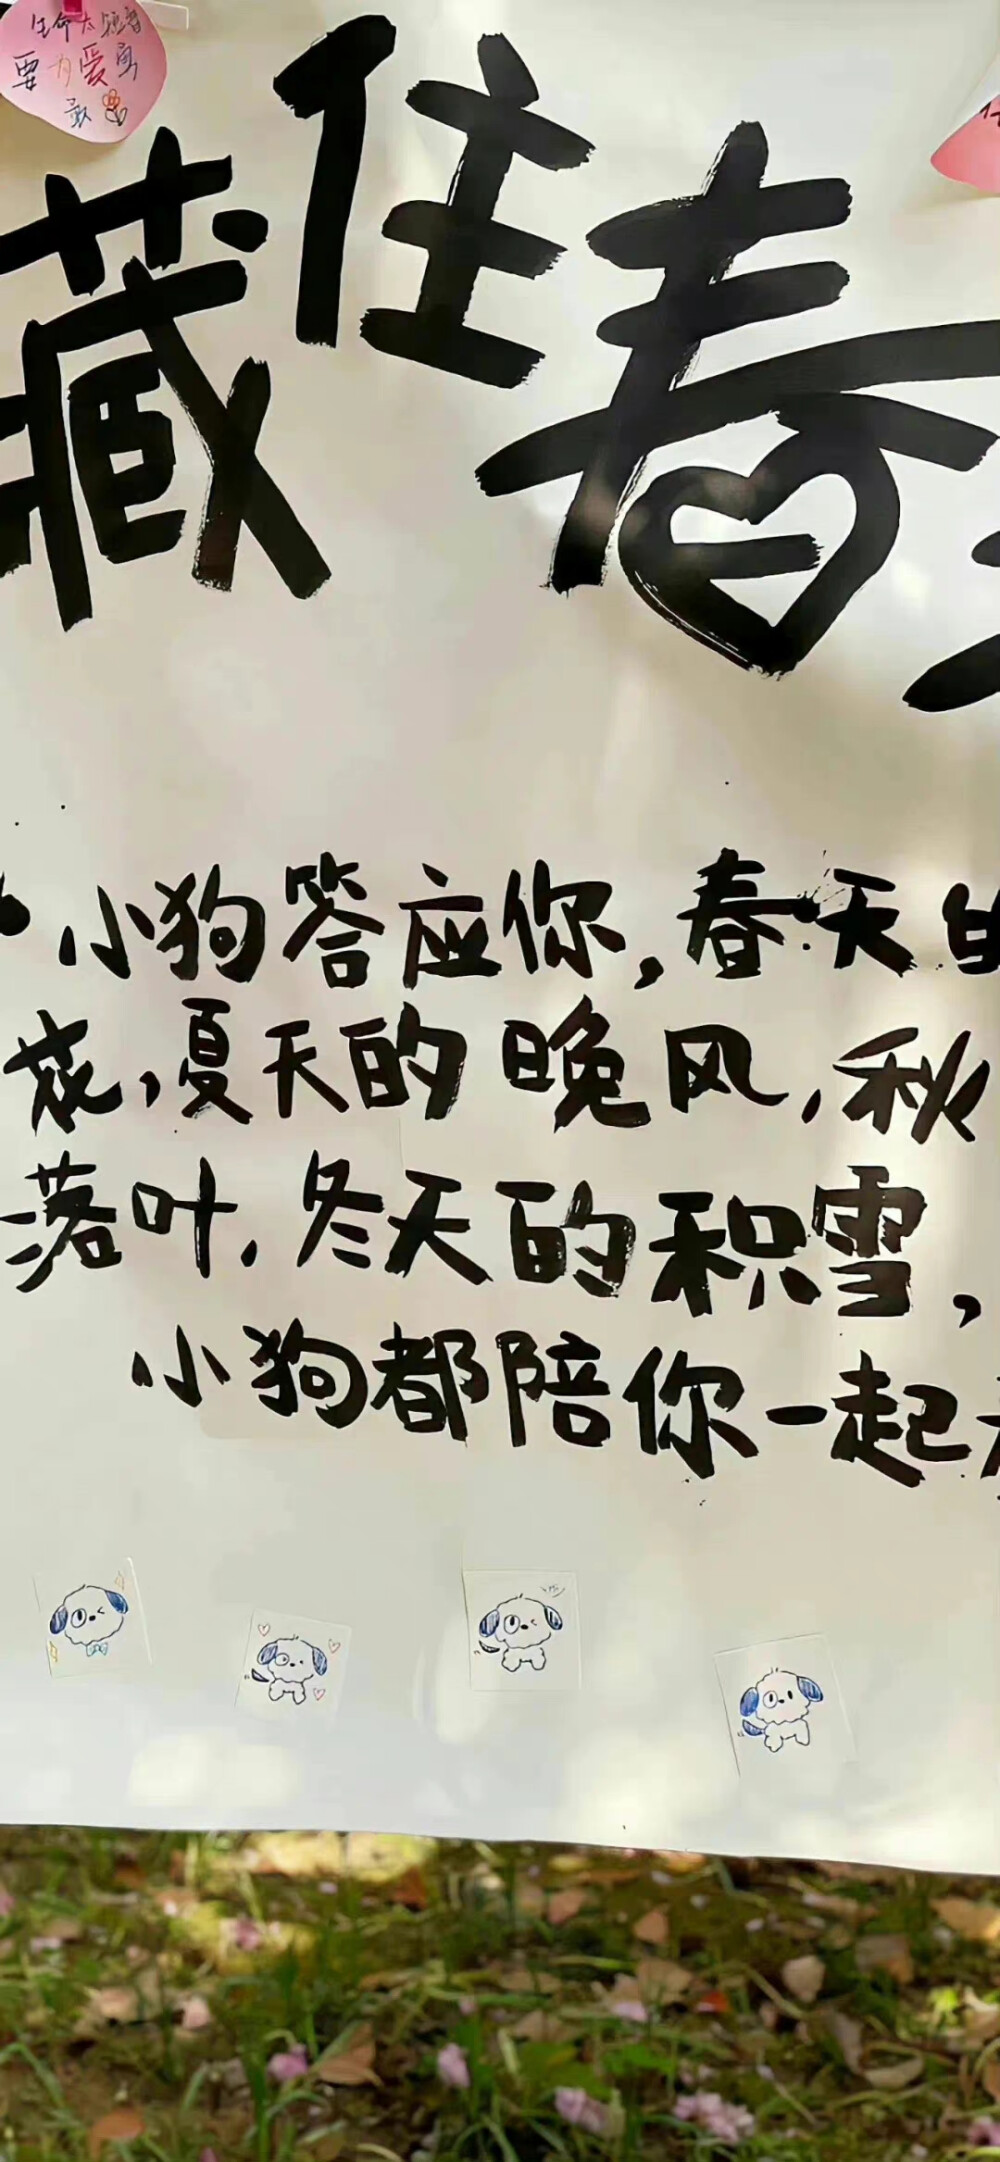 生命太短暂
要为爱勇
敢
藏住春
小狗答应你,春天
花,夏天的晚风,秋
落叶,冬天的积雪,
小狗都陪你一起